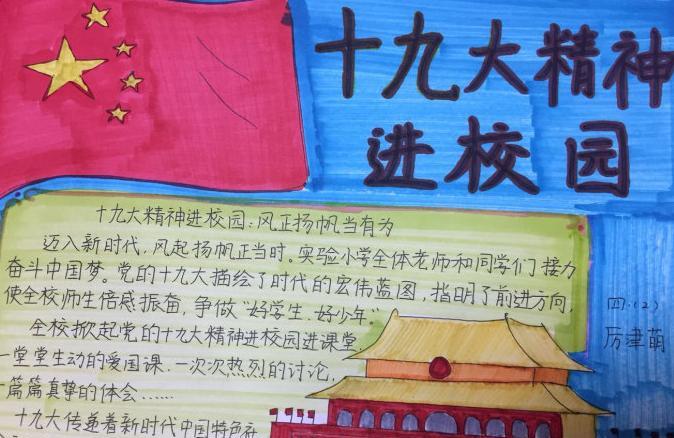 十九大精神
进校园
十九大精神进校园：风正扬帆当有为
迈入新时代，风起扬帆正当时。实验小学全体老师和同学们接力
奋斗中国梦。党的十九大描绘了时代的宏伟蓝图，指明了前进方向，
使全校师生倍感振奋，争做“好学生、好少年”
全校掀起党的十九大精神进校园进课堂
一堂堂生动的爱国课，一次次热烈的讨论，
一篇篇真挚的体会……
十九大传递着新时代中国特色社
四.（2）
厉津萌